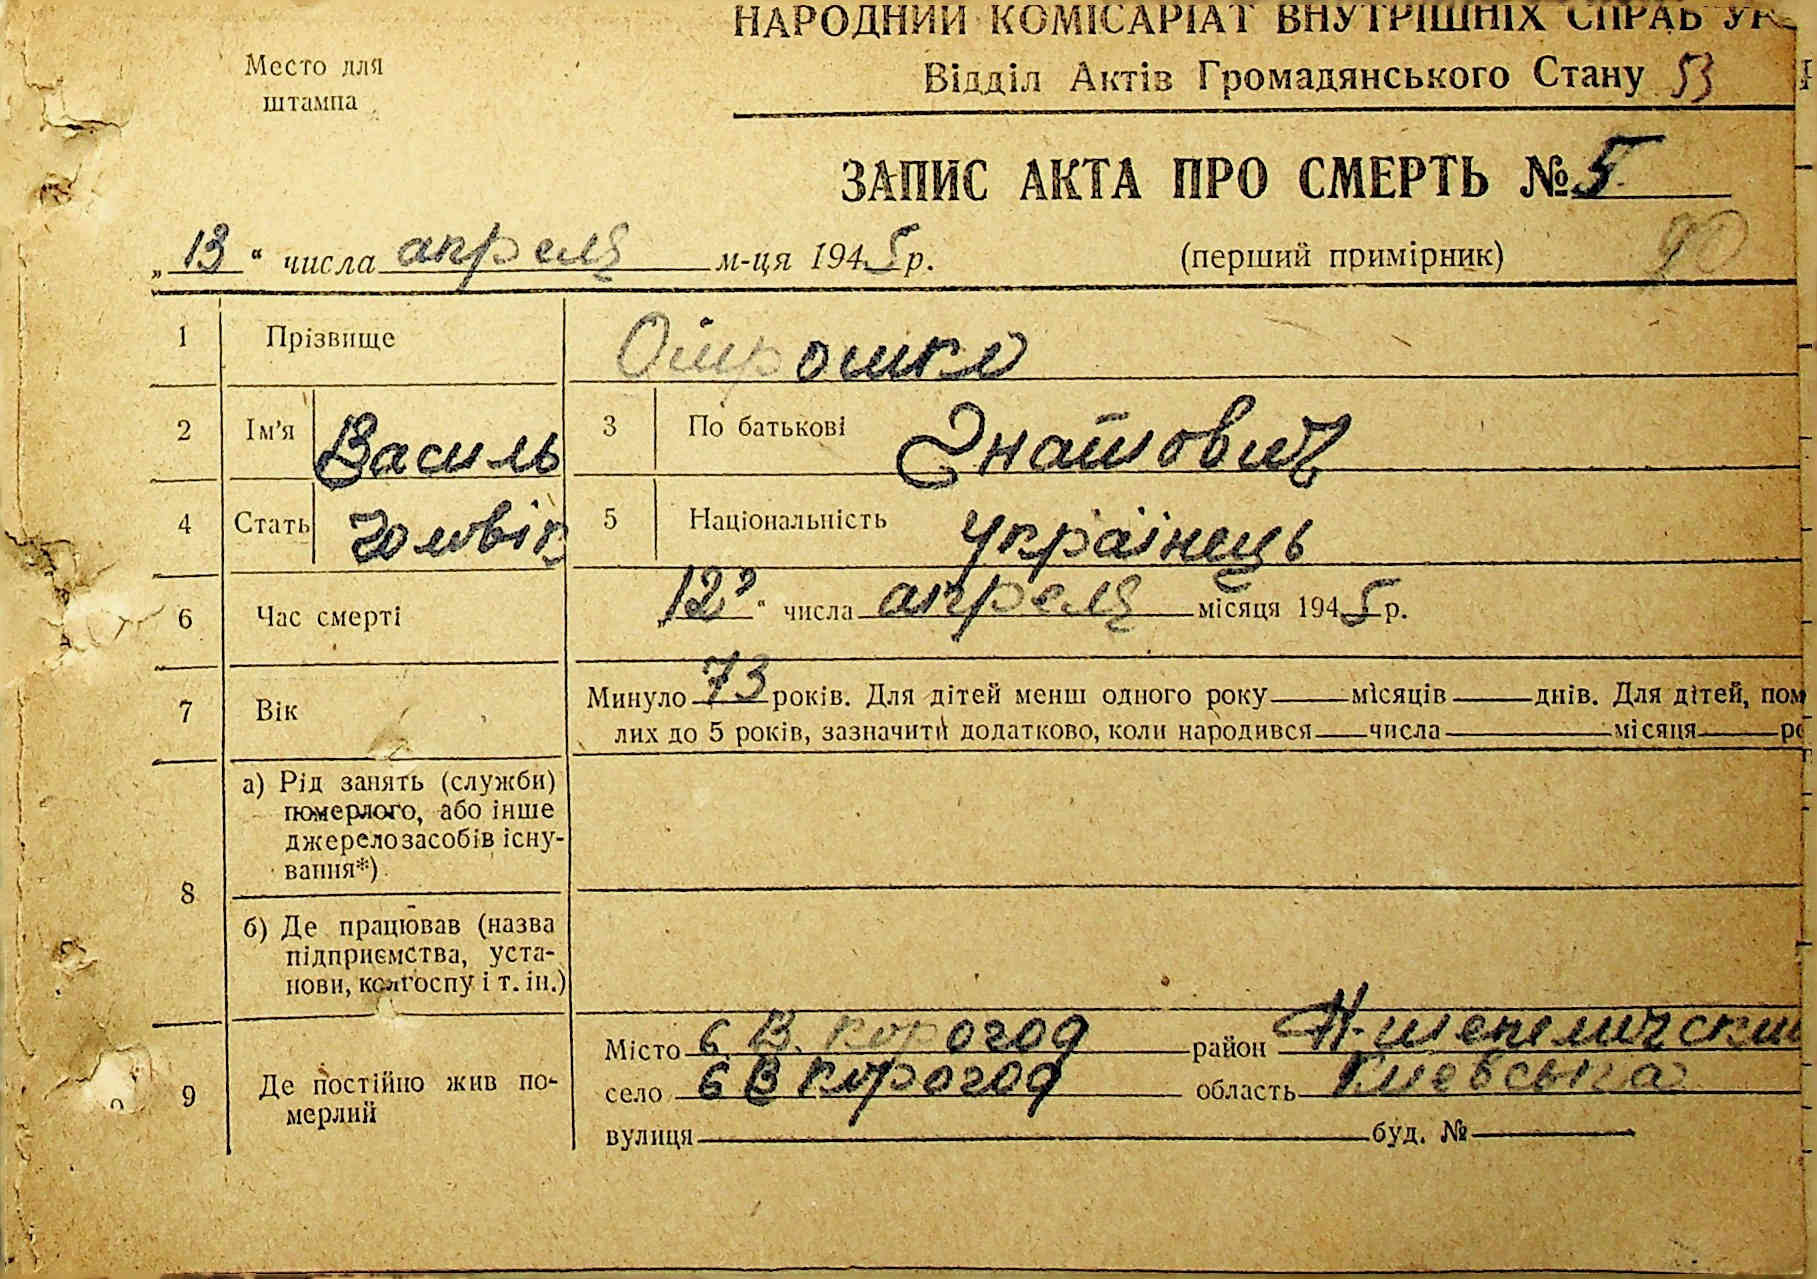 НАРОДНИЙ КОМІСАРІАТ ВНУТРІШНІХ СПРАВ УР
Место для штампа
Відділ Актів Громадянського Стану 53
ЗАПИС АКТА ПРО СМЕРТЬ № 5
„13“ числа апреля м-ця 1945 р. (перший примірник) 90
1 Прізвище Отрошко
2 Ім'я Василь 3 По батькові Гнатович
4 Стать чоловік 5 Національність українець
6 Час смерті „12“ числа апреля місяця 1945 р.
7 Вік Минуло 73 років. Для дітей менш одного року місяців днів. Для дітей, пом
лих до 5 років, зазначити додатково, коли народився числа місяця ро
8 а) Рід занять (служби)
померлого, або інше
джерело засобів існу-
вання*)
б) Де працював (назва
підприємства, уста-
нови, колгоспу і т. ін.)
9 Де постійно жив по-
мерлий
Місто с. В. Корогод район Н-шепеличский
село с В Корогод область Киевська
вулиця буд. №